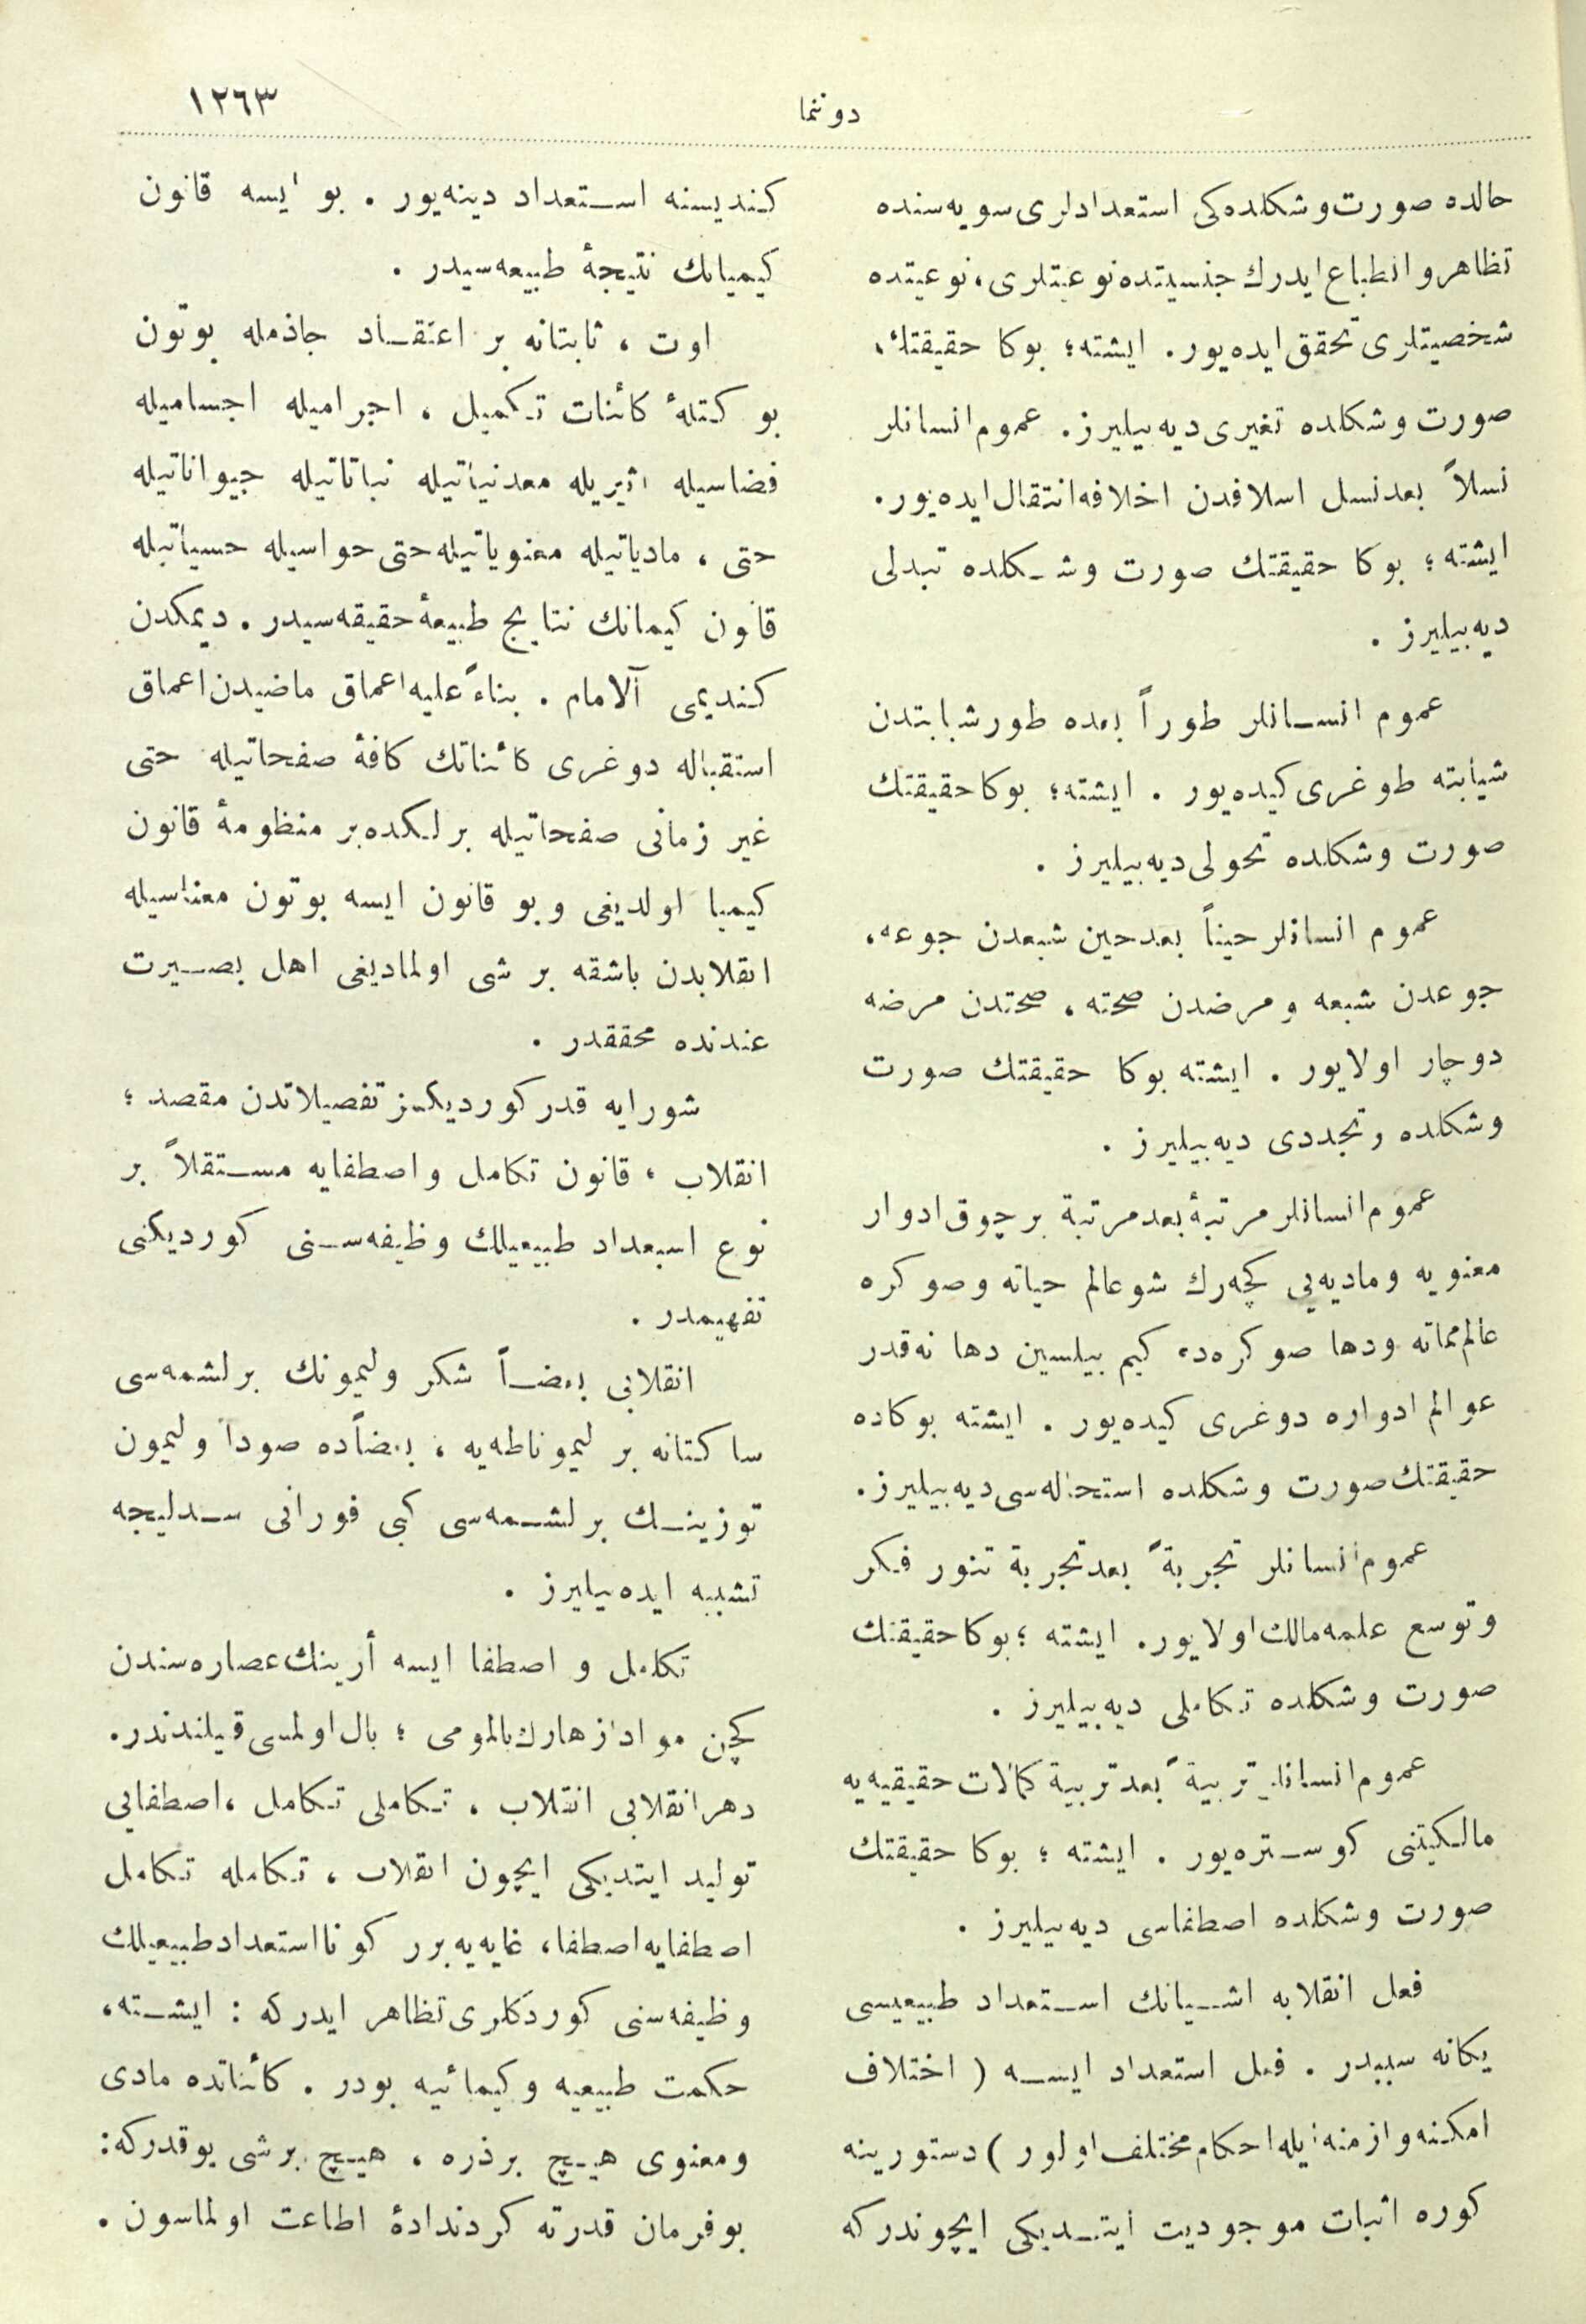 ١٢٦٣
دوننما
حالده صورت وشكلده‌كی استعدادلری سویه‌سنده
تظاهر و انطباع ایدرك جنسیتده نوعیتلری، نوعیتده
شخصیتلری تحقق ایده‌یور. ایشته؛ بوكا حقیقتك،
صورت وشكلده تغیری دیه‌بیلیرز. عموم انسانلر
نسلاً بعدنسل اسلافدن اخلافه انتقال ایده‌یور.
ایشته؛ بوكا حقیقتك صورت وشكلده تبدلی
دیه‌بیلیرز .
عموم انسانلر طوراً بعده طور شبابتدن
شیابته طوغری كیده‌یور . ایشته؛ بوكا حقیقتك
صورت وشكلده تحولی دیه‌بیلیرز .
عموم انسانلر حیناً بعدحین شبعدن جوعه،
جوعدن شبعه و مرضدن صحته ، صحتدن مرضه
دوچار اولایور . ایشته بوكا حقیقتك صورت
وشكلده وتجددی دیه‌بیلیرز .
عموم انسانلر مرتبةً بعد مرتبة برچوق ادوار
معنویه ومادیه‌یی كچه‌رك شو عالم حیاته وصوكره
عالم مماته ودها صوكره‌ده كیم بیلسین دها نه‌قدر
عوالم ادواره دوغری كیده‌یور . ایشته بوكاده
حقیقتك صورت وشكلده استحاله‌سی دیه‌بیلیرز.
عموم انسانلر تجربةً بعد تجربة تنور فكر
وتوسع علمه مالك اولایور. ایشته ؛ بوكا حقیقتك
صورت وشكلده تكاملی دیه‌بیلیرز .
عموم انسانلر تربیةً بعد تربیة كمالات حقیقیه‌یه
مالكیتنی كوستره‌یور . ایشته ؛ بوكا حقیقتك
صورت وشكلده اصطفاسی دیه‌بیلیرز .
فعل انقلابه اشیانك استعداد طبیعیسی
یكانه سببدر . فعل استعداد ایسه ( اختلاف
امكنه وازمنه ایله احكام مختلف اولور ) دستورینه
كوره اثبات موجودیت ایتدیكی ایچوندركه
كندیسنه استعداد دینه‌یور . بو ایسه قانون
كیمیانك نتیجۀ طبیعه‌سیدر .
اوت ، ثابتانه بر اعتقاد جاذمله بوتون
بو كتلۀ كائنات تكمیل ، اجرامیله اجسامیله
فضاسیله اثیریله معدنیاتیله نباتاتیله حیواناتیله
حتی ، مادیاتیله معنویاتیله حتی حواسیله حسیاتیله
قانون كیمانك نتایج طبیعۀ حقیقه‌سیدر . دیمكدن
كندیمی آلامام . بناءً علیه اعماق ماضیدن اعماق
استقباله دوغری كائناتك كافۀ صفحاتیله حتی
غیر زمانی صفحاتیله برلكده بر منظومۀ قانون
كیمیا اولدیغی و بو قانون ایسه بوتون معناسیله
انقلابدن باشقه بر شی اولمادیغی اهل بصیرت
عندنده محققدر .
شورایه قدر كوردیكز تفصیلاتدن مقصد ؛
انقلاب ، قانون تكامل واصطفایه مستقلاً بر
نوع اسبعداد طبیعیلك وظیفه‌سنی كوردیكنی
تفهیمدر .
انقلابی بعضاً شكر ولیمونك برلشمه‌سی
ساكتانه بر لیموناطه‌یه ، بعضاًده صودا ولیمون
توزینك برلشمه‌سی كبی فورانی سدلیجه
تشبیه ایده‌بیلیرز .
تكامل و اصطفا ایسه أرینك عصاره‌سندن
كچن مواد ازهارك بالمومی ؛ بال اولمسی قیلندندر.
دهر انقلابی انقلاب ، تكاملی تكامل ، اصطفایی
تولید ایتدیكی ایچون انقلاب ، تكامله تكامل
اصطفایه اصطفا، غایه‌یه برر كونا استعداد طبیعیلك
وظیفه‌سنی كوردكلری تظاهر ایدركه : ایشته،
حكمت طبیعیه وكیمائیه بودر . كائناتده مادی
ومعنوی هیچ برذره ، هیچ برشی یوقدركه:
بو فرمان قدرته كردندادۀ اطاعت اولماسون .